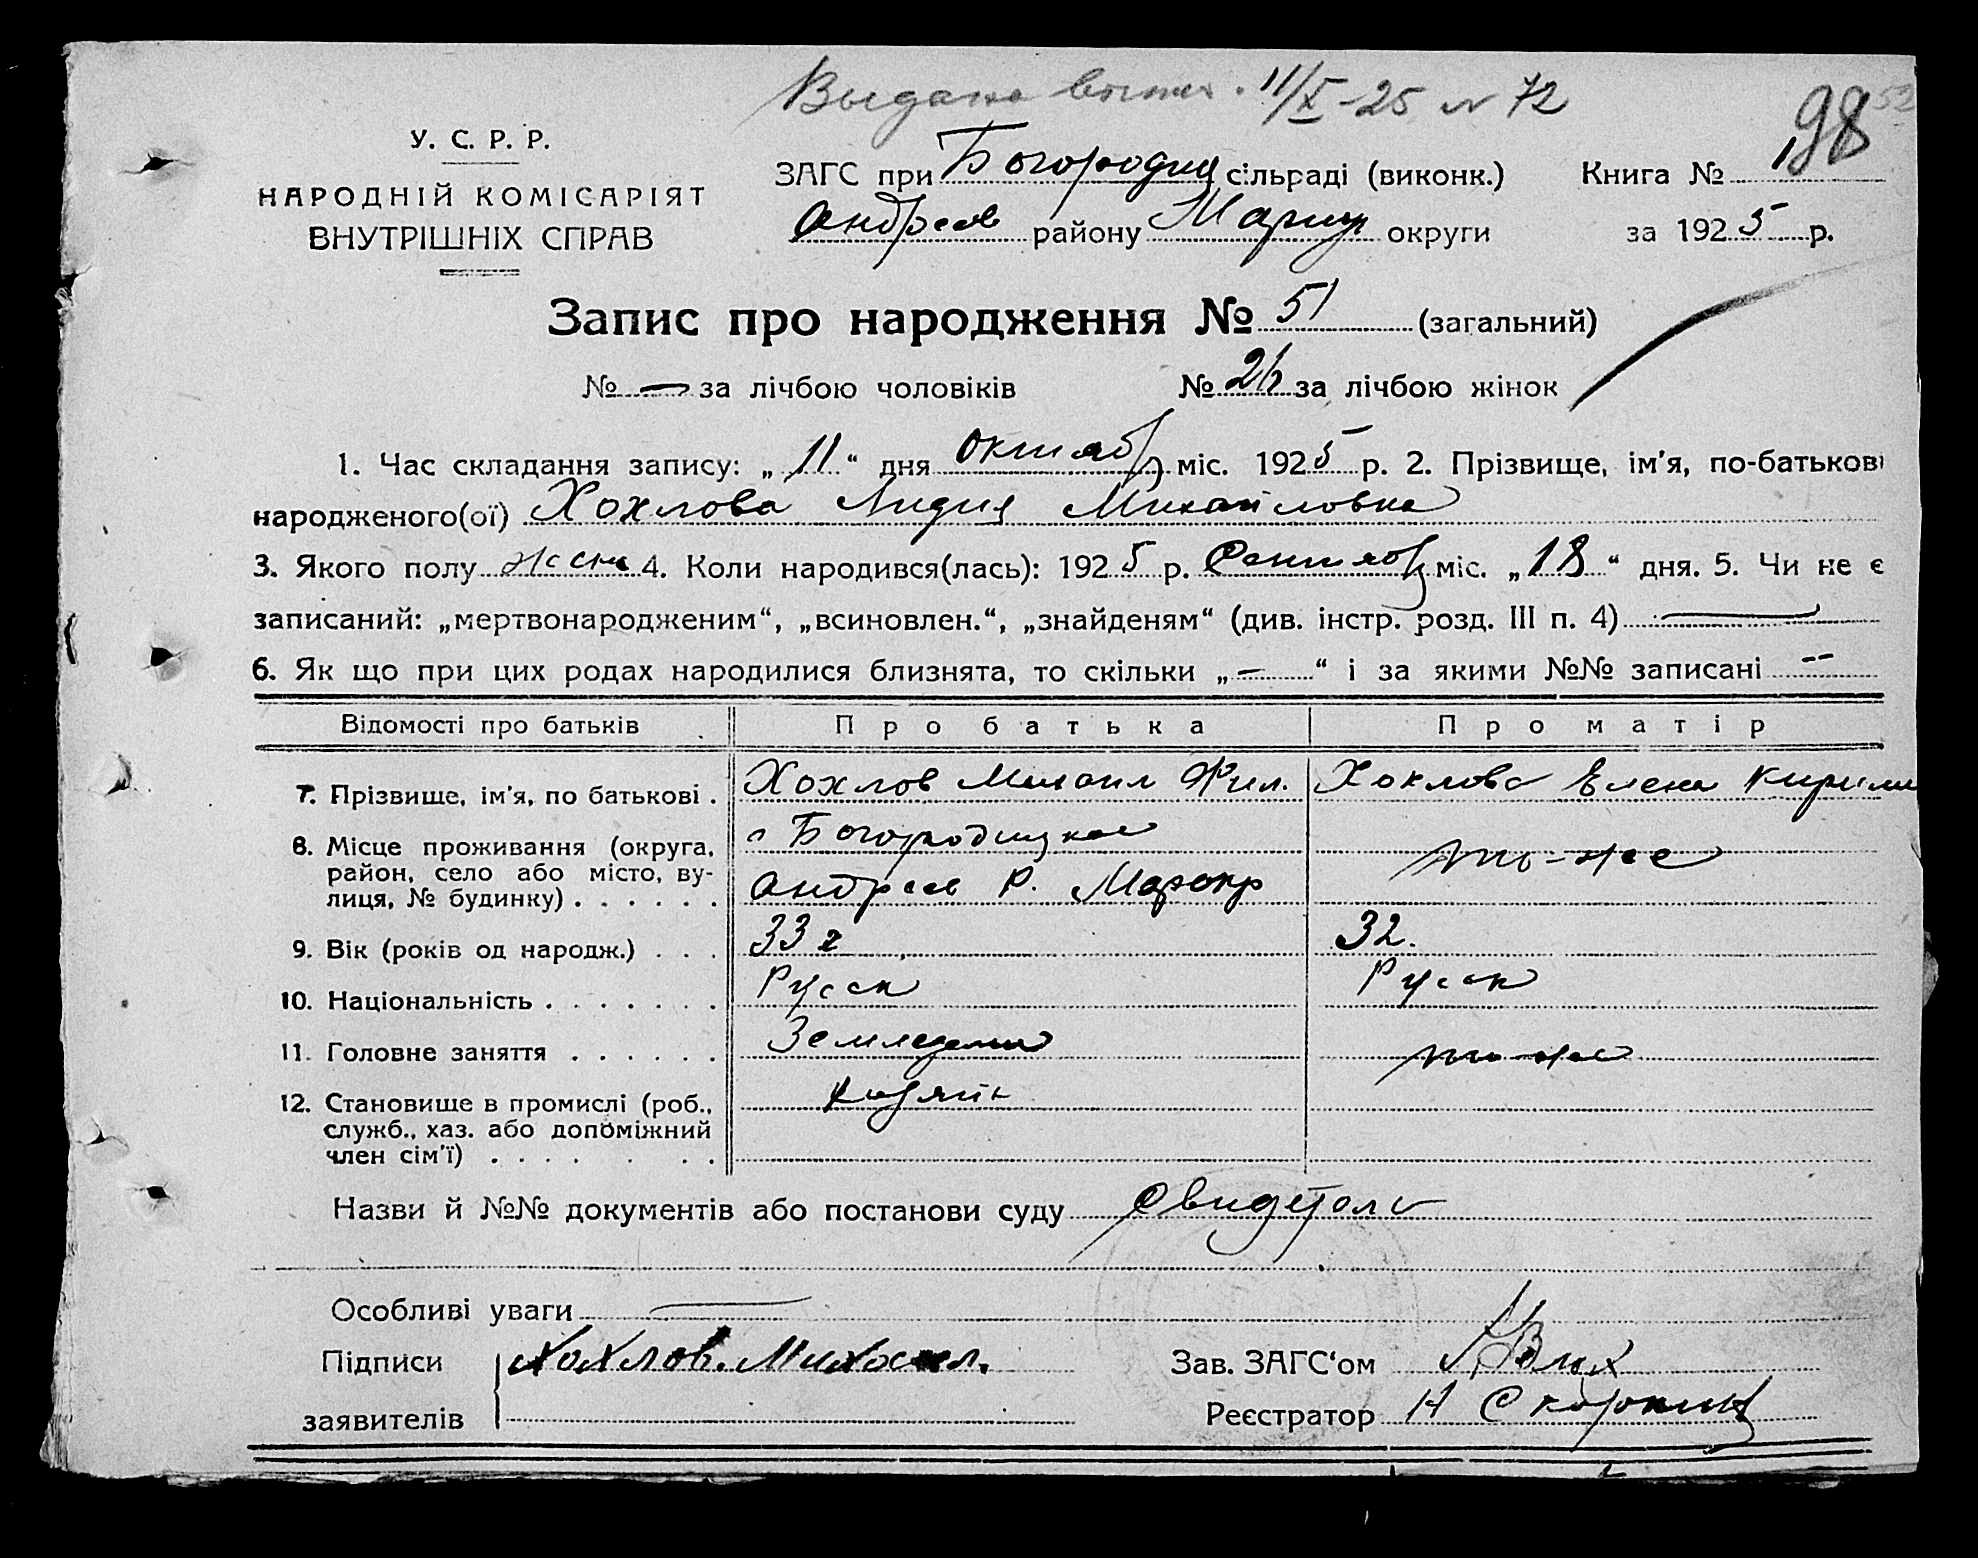 Выдана выпис. 11/X-25 N 72
98 52
У. С. Р. Р.
НАРОДНІЙ КОМІСАРІЯТ
ВНУТРІШНІХ СПРАВ
ЗАГС при Богородиц сільраді (виконк.) Книга № 1
Андреев району Мариуп округи за 1925 р.
Запис про народження № 51 (загальний)
№ — за лічбою чоловіків № 26 за лічбою жінок
1. Час складання запису: „11“ дня октября міс. 1925 р. 2. Прізвище, ім'я, по-батькові
народженого(ої) Хохлова Лидия Михайловна
3. Якого полу женск 4. Коли народився(лась): 1925 р. Сентябр міс. „18“ дня. 5. Чи не є
записаний: „мертвонародженим“, „всиновлен.“, „знайденям“ (див. інстр. розд. III п. 4) —
6. Як що при цих родах народилися близнята, то скільки „—“ і за якими №№ записані —
Відомості про батьків Про батька Про матір
7. Прізвище, ім'я, по батькові . Хохлов Михаил Фил. Хохлова Елена Кирилл
8. Місце проживання (округа, район, село або місто, вулиця, № будинку) . . . . . .
с Богородицкое
Андреев Р. Мар окр
то-же
9. Вік (років од народж.) . . . 33 г 32.
10. Національність . . . . . . . Русск Русск
11. Головне заняття . . . . . . Земледелие то-же
12. Становище в промислі (роб.,
служб., хаз. або допоміжний
член сім'ї) . . . . . . .
хозяин
Назви й №№ документів або постанови суду Свидетели
Особливі уваги —
Підписи Хохлов. Михаил. Зав. ЗАГС'ом
заявителів Реєстратор Н